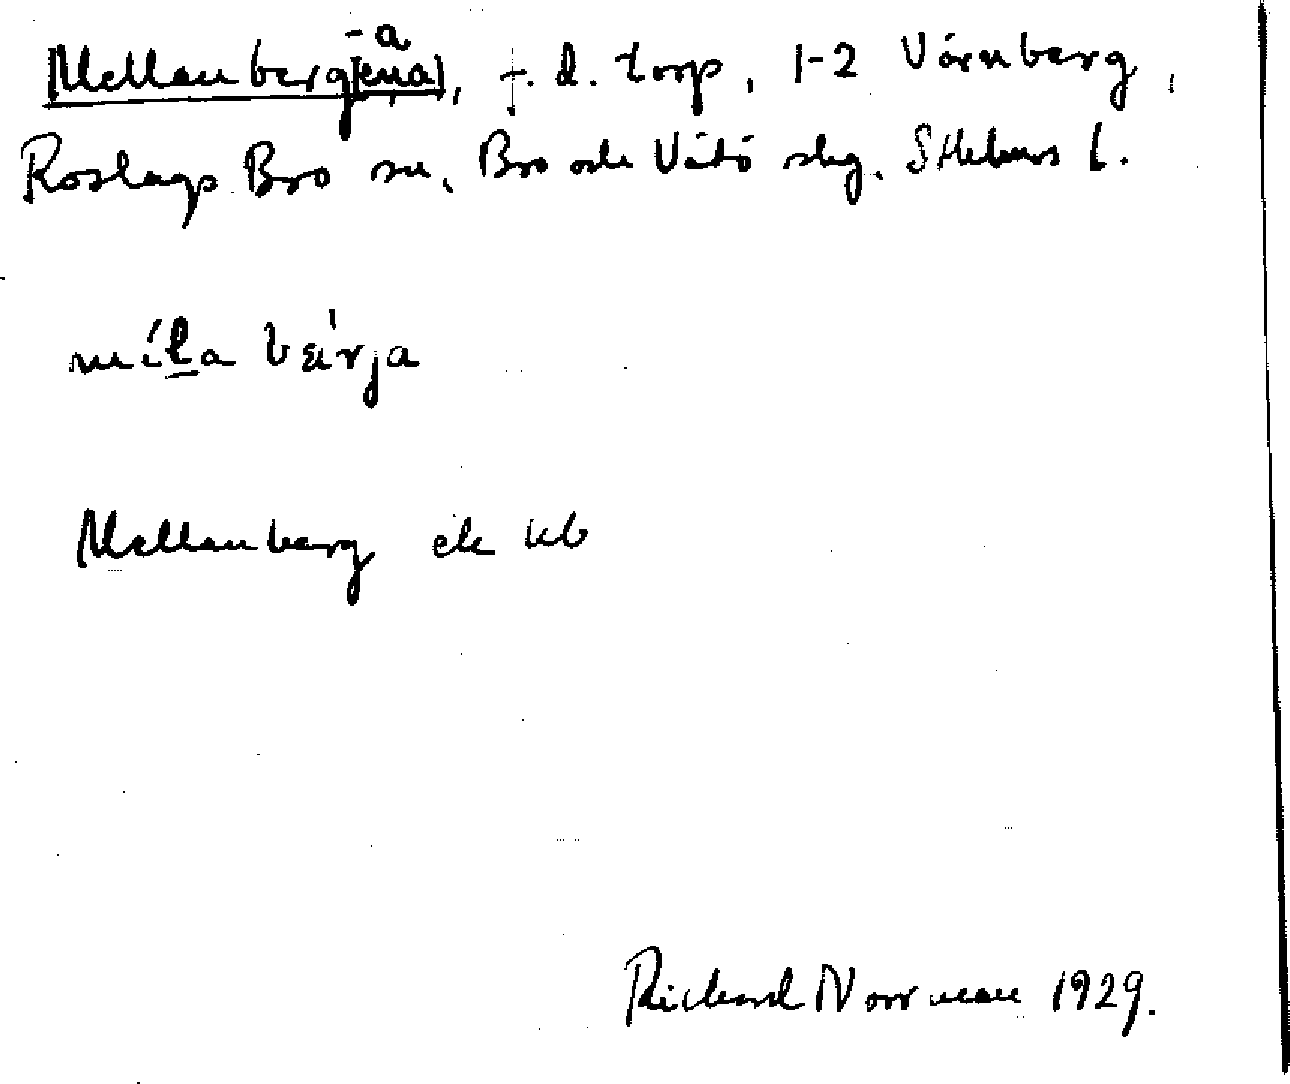 -a
Mellanberg(ena), f. d. torp, 1-2 Vörnberg,
Roslags Bro sn, Bro och Vätö skg. Sthlms l.
míla bärja
Mellanberg ek kb
Richard Norrman 1929.